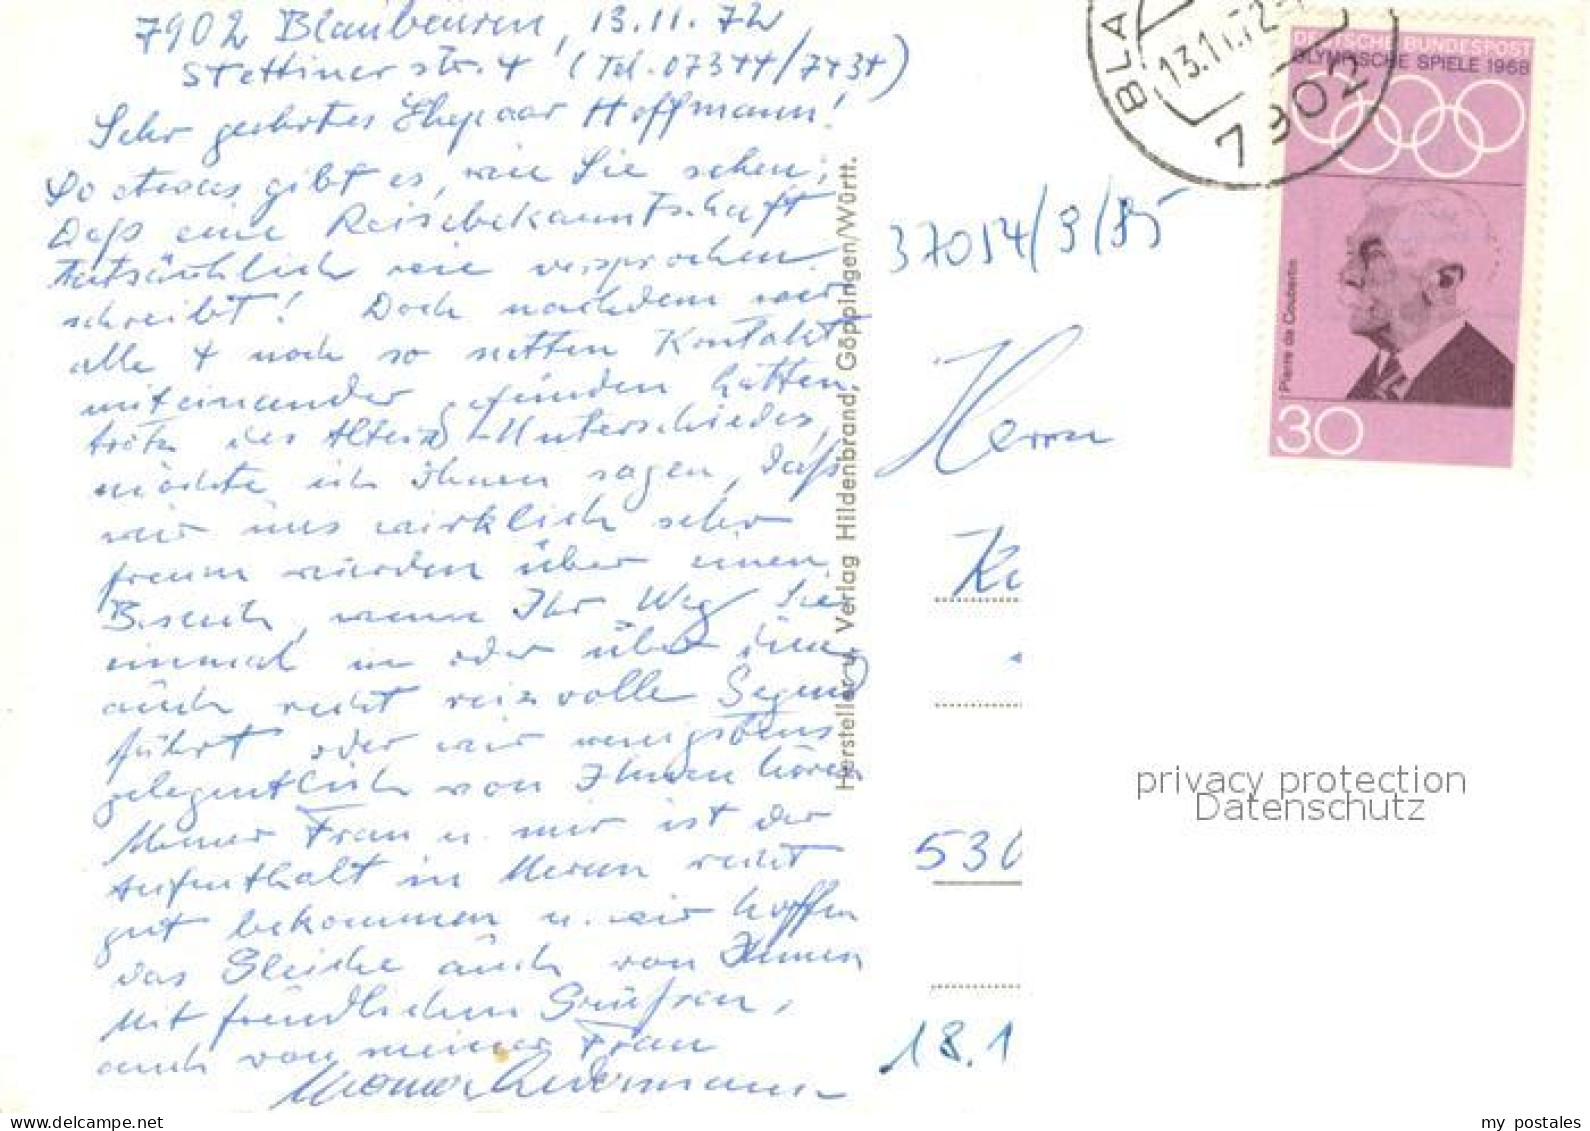 7902 Blaubeuren, 13.11.72
Stettiner str. 4 (Tel. 07344/7434)
Sehr geehrtes Ehepaar Hoffmann!
So etwas gibt es, wie Sie sehen;
Daß eine Reisebekanntschaft
tatsächlich wie versprochen
schreibt! Doch nachdem wir
alle 4 noch so netten Kontakt
miteinander gefunden hatten,
trotz des Alters-Unterschiedes,
möchte ich Ihnen sagen, daß
wir uns wirklich sehr
freuen würden über einen
Besuch, wenn Ihr Weg Sie
einmal in oder über diese
auch recht reizvolle Gegend
führt oder wir wenigstens
gelegentlich von Ihnen hören
Meiner Frau u. mir ist der
Aufenthalt in Meran recht
gut bekommen u. wir hoffen
das Gleiche auch von Ihnen
Mit freundlichen Grüßen,
auch von meiner Frau
Hersteller u. Verlag Hildenbrand, Göppingen/Württ.
BLA
13.11.72-
7902
DEUTSCHE BUNDESPOST
OLYMPISCHE SPIELE 1968
Pierre de Coubertin
30
37014/9/85
Herrn
530
18.1
privacy protection
Datenschutz
my postales